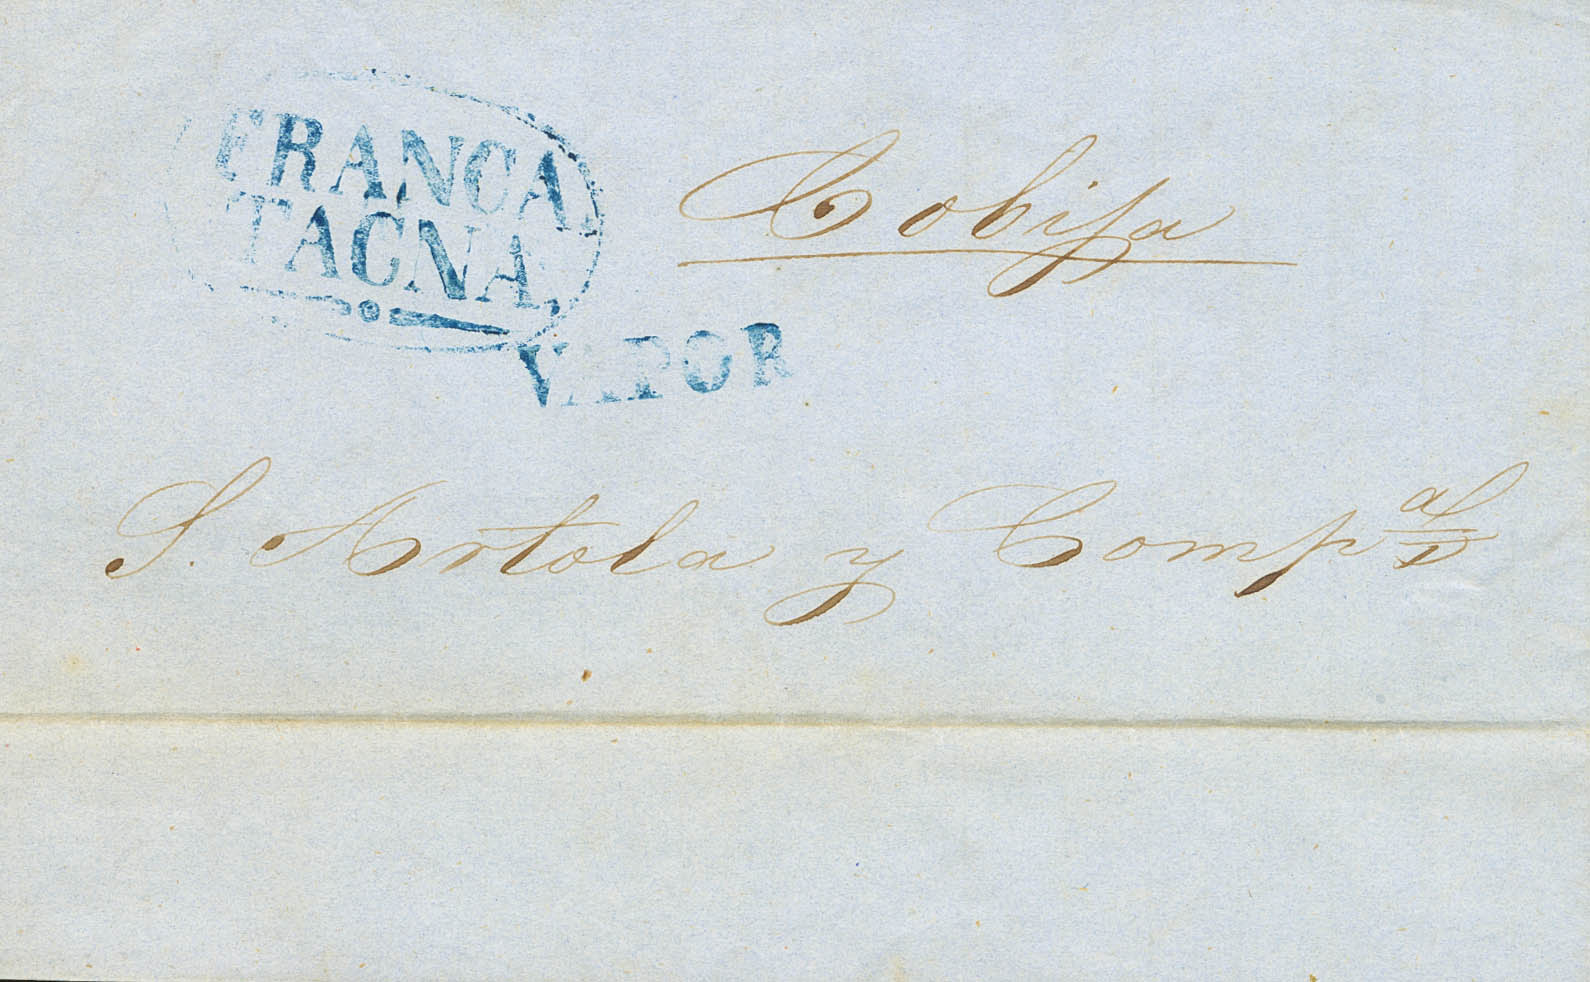 FRANCA.
TACNA.
VAPOR
Cobija
S. Artola y Comp.